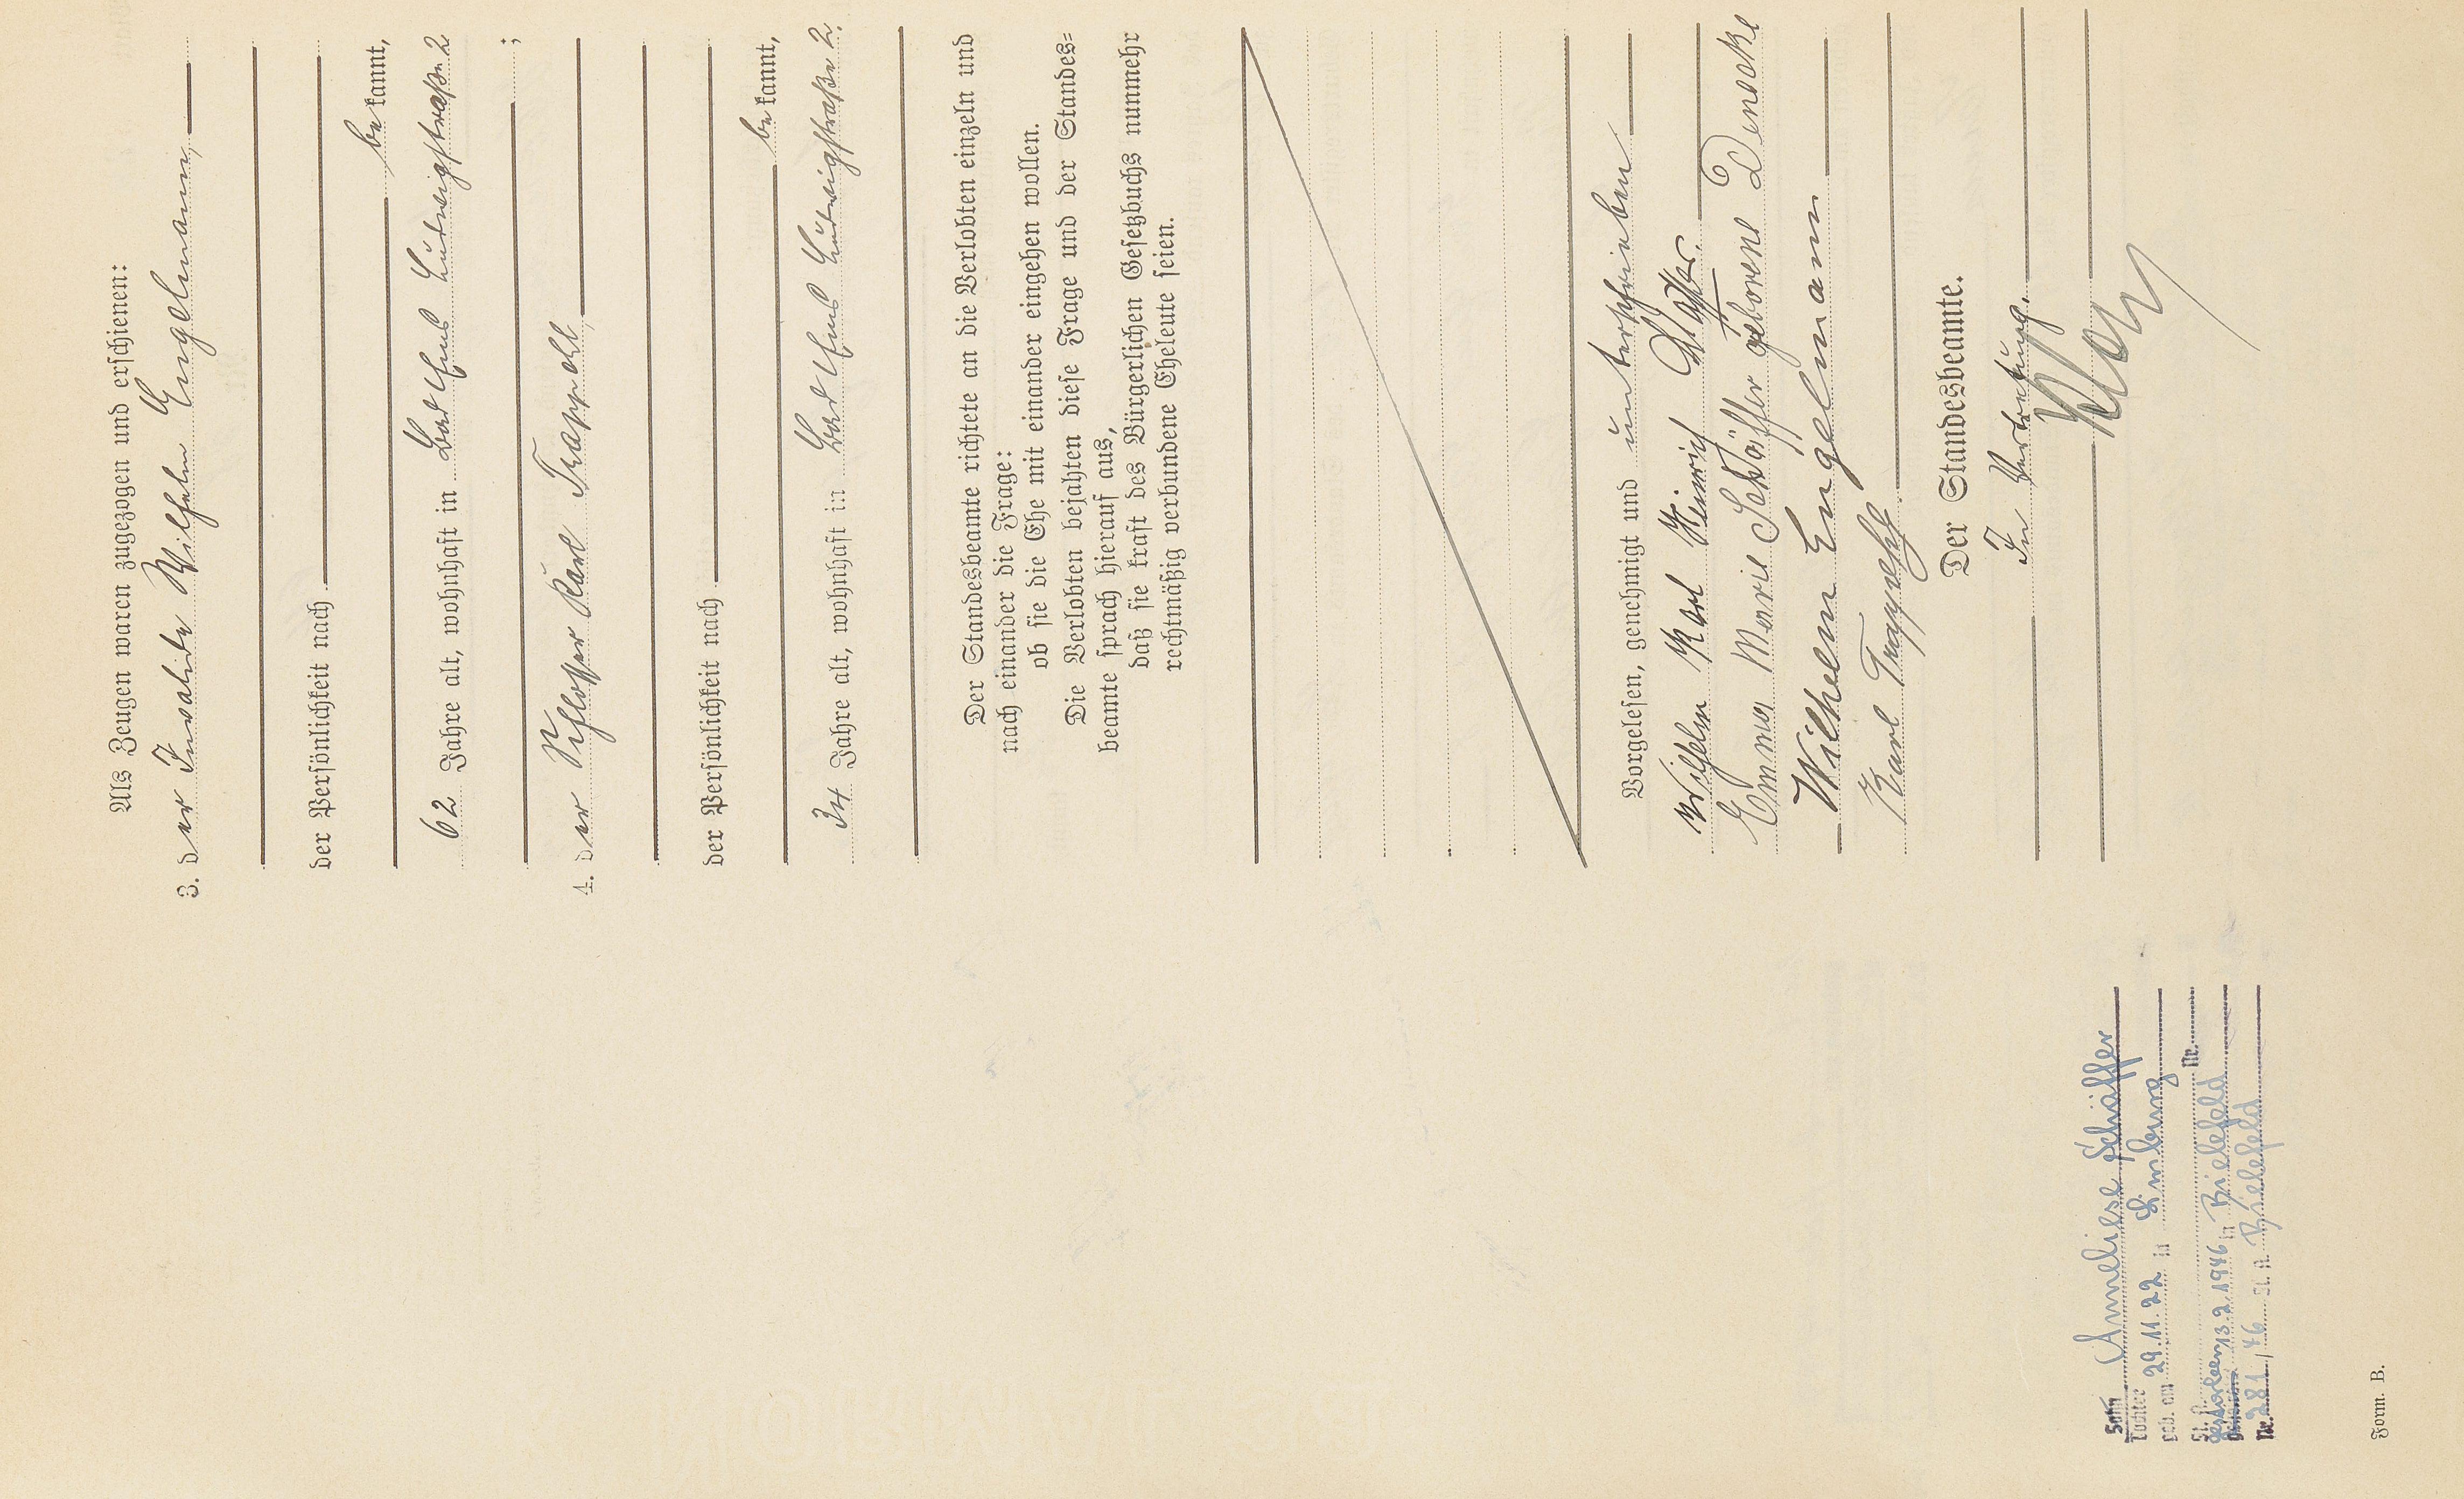 Als Zeugen waren zugezogen und erschienen:
3. der Invalide Wilhelm Engelmann,
der Persönlichkeit nach
bekannt,
62 Jahre alt, wohnhaft in Bad Ems Ludwigstraße 2
;
4. der Schlosser Karl Trappehl,
der Persönlichkeit nach
bekannt,
34 Jahre alt, wohnhaft in Bad Ems Ludwigstraße 2.
Der Standesbeamte richtete an die Verlobten einzeln und
nach einander die Frage:
ob sie die Ehe mit einander eingehen wollen.
Die Verlobten bejahten diese Frage und der Standes=
beamte sprach hierauf aus,
daß sie kraft des Bürgerlichen Gesetzbuchs nunmehr
rechtmäßig verbundene Eheleute seien.
Vorgelesen, genehmigt und unterschrieben
Wilhelm Karl Heinrich
Emma Marie Schäffer geborene Denecke
Wilhelm Engelmann
Karl Trappehl
Der Standesbeamte.
In Vertretung.
Sohn Anneliese Schäffer
Tochter
geb. am 29.11.22 in Limburg
St. A. Nr.
gestorben 13.2.1946 in Bielefeld
Nr. 281/46 St. A. Bielefeld
Form. B.